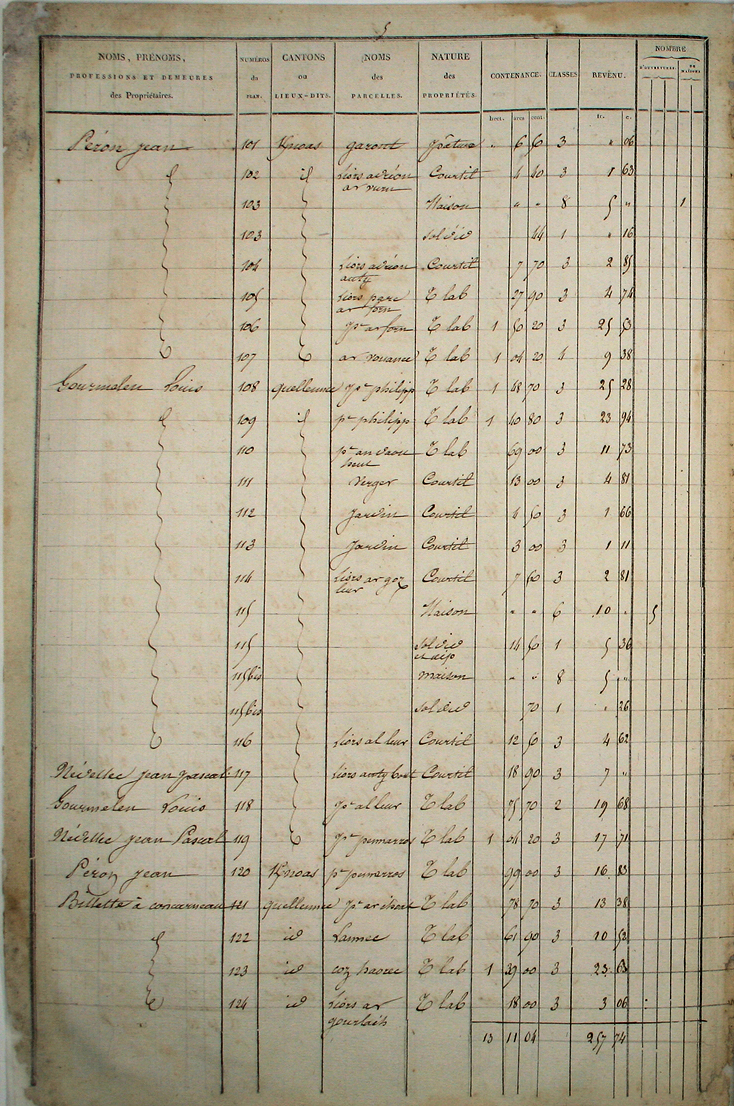 5
NOMS, PRÉNOMS, PROFESSIONS ET DEMEURES des Propriétaires. NUMÉROS du PLAN. CANTONS ou LIEUX-DITS. NOMS des PARCELLES. NATURE des PROPRIÉTÉS. CONTENANCE. CLASSES. REVENU. NOMBRE D'OUVERTURES. DE MAISONS
hect. ares cent. fr. c.
Péron jean 101 Knoas garont pâture " 6 50 3 " 06
102 id liors adréon 4 40 3 1 63
Courtil
103 Maison " " 8 5 " 1
103 sol et id 44 1 " 16
104 liors adréon Courtil 7 70 3 2 85
anty
105 liors parc T lab 27 90 3 4 74
ar forn
106 pc ar forn T lab 1 50 20 3 25 53
107 T lab 1 04 20 4 9 38
Gourmelen Louis 108 quellennec pc philipp T lab 1 48 70 3 25 28
109 id pc philipp T lab 1 40 80 3 23 94
110 T lab 69 00 3 11 73
111 Verger Courtil 13 00 3 4 81
112 jardin Courtil 4 50 3 1 66
113 jardin Courtil 3 00 3 1 11
114 liors ar goz Courtil 7 60 3 2 81
leur
115 Maison " " 6 10 " 5
115 14 50 1 5 36
115 bis maison " " 8 5 "
115 bis 70 1 " 26
116 liors al leur Courtil 12 50 3 4 62
Névellec jean pascal 117 liors Courtil 18 90 3 7 "
Gourmelen Louis 118 pc al leur T lab 75 70 2 19 68
Névellec jean Pascal 119 pc penmarros T lab 1 04 20 3 17 71
Péron jean 120 Knoas pc penmarros T lab 99 00 3 16 83
Billette à concarneau 121 quellennec T lab 78 70 3 13 38
122 id Lannec T lab 61 90 3 10 52
123 id T lab 1 39 00 3 23 63
124 id liors ar T lab 18 00 3 3 06
gourlaih
13 11 04 257 74